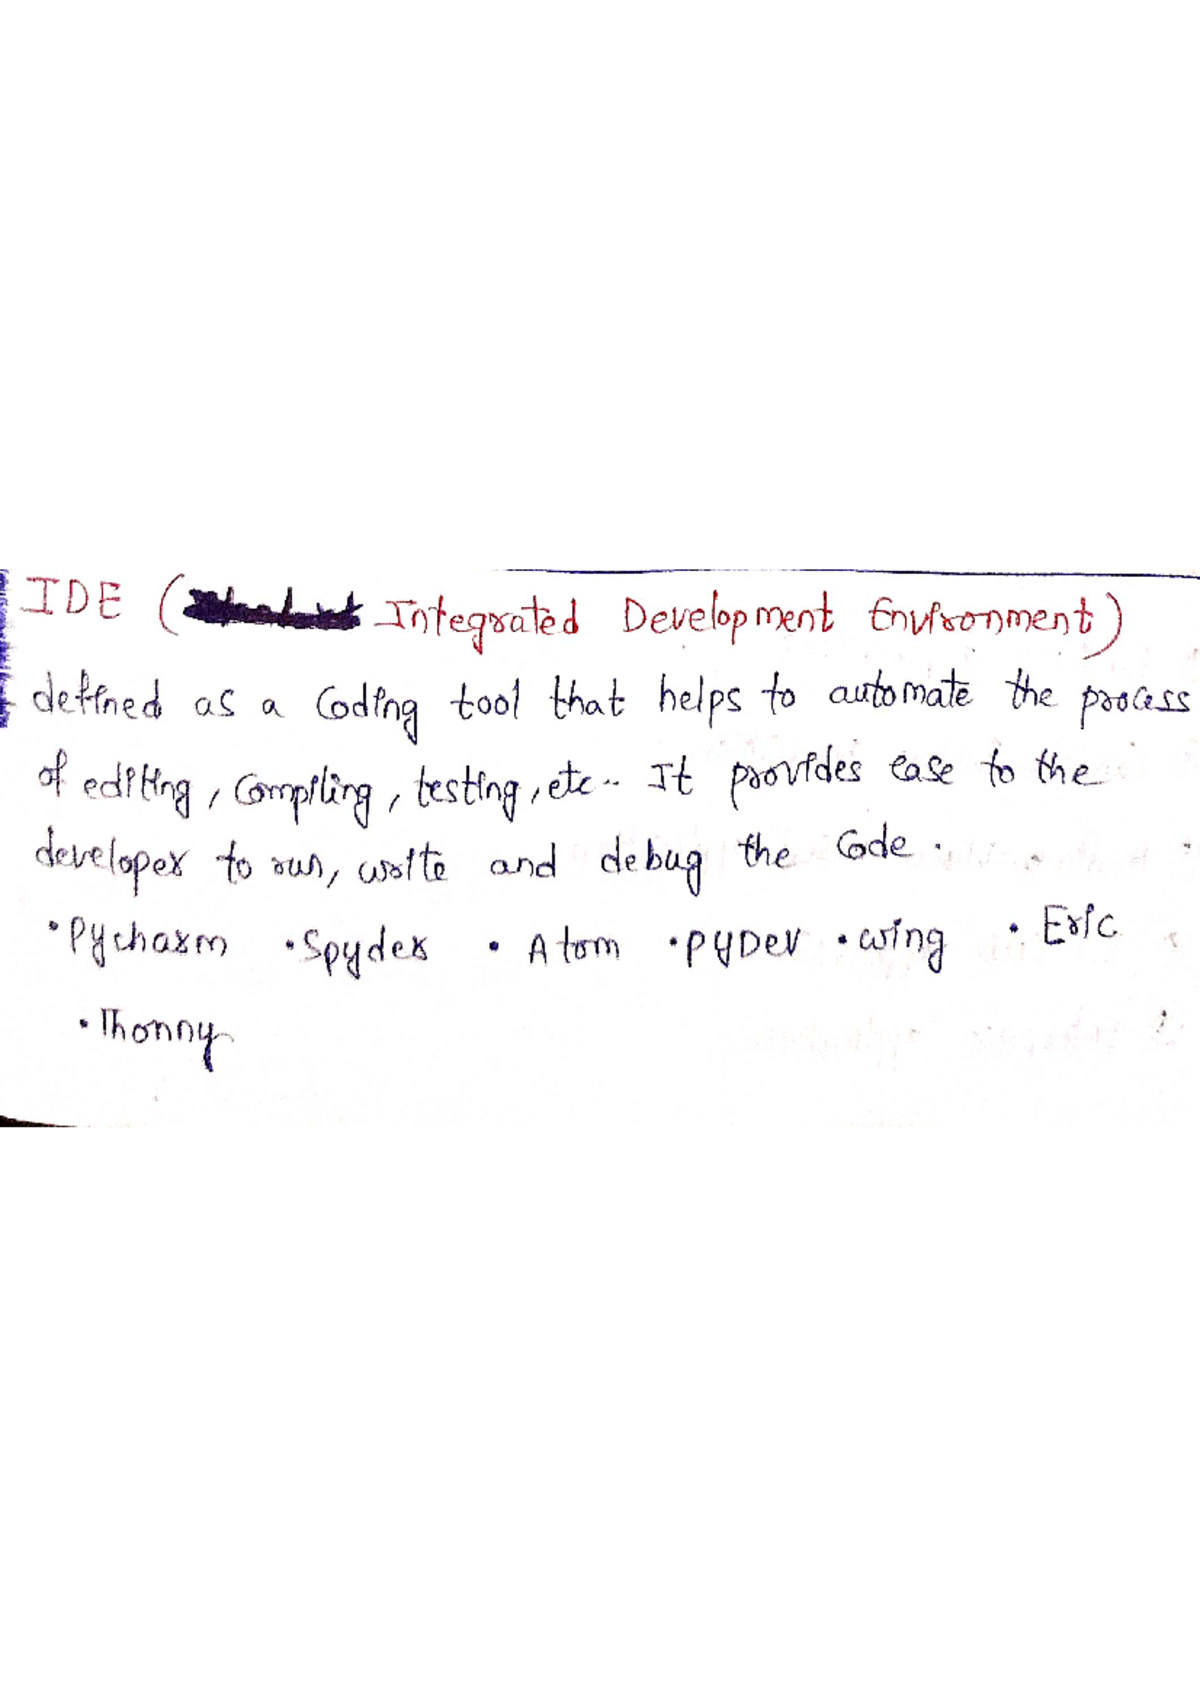 IDE ( Integrated Development Environment)
defined as a Coding tool that helps to automate the process
of editing, Compiling, testing, etc.. It provides ease to the
developer to run, write and debug the Code.
• Pycharm • Spyder • Atom • PyDev • wing • Eric
• Thonny